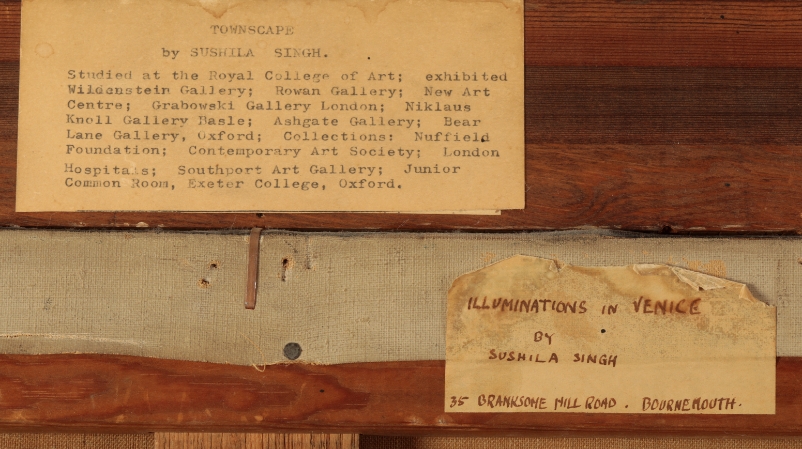 TOWNSCAPE
by SUSHILA SINGH.
Studied at the Royal College of Art; exhibited
Wildenstein Gallery; Rowan Gallery; New Art
Centre; Grabowski Gallery London; Niklaus
Knoll Gallery Basle; Ashgate Gallery; Bear
Lane Gallery, Oxford; Collections: Nuffield
Foundation; Contemporary Art Society; London
Hospitals; Southport Art Gallery; Junior
Common Room, Exeter College, Oxford.
ILLUMINATIONS IN VENICE
BY
SUSHILA SINGH
35 BRANKSOME HILL ROAD. BOURNEMOUTH.